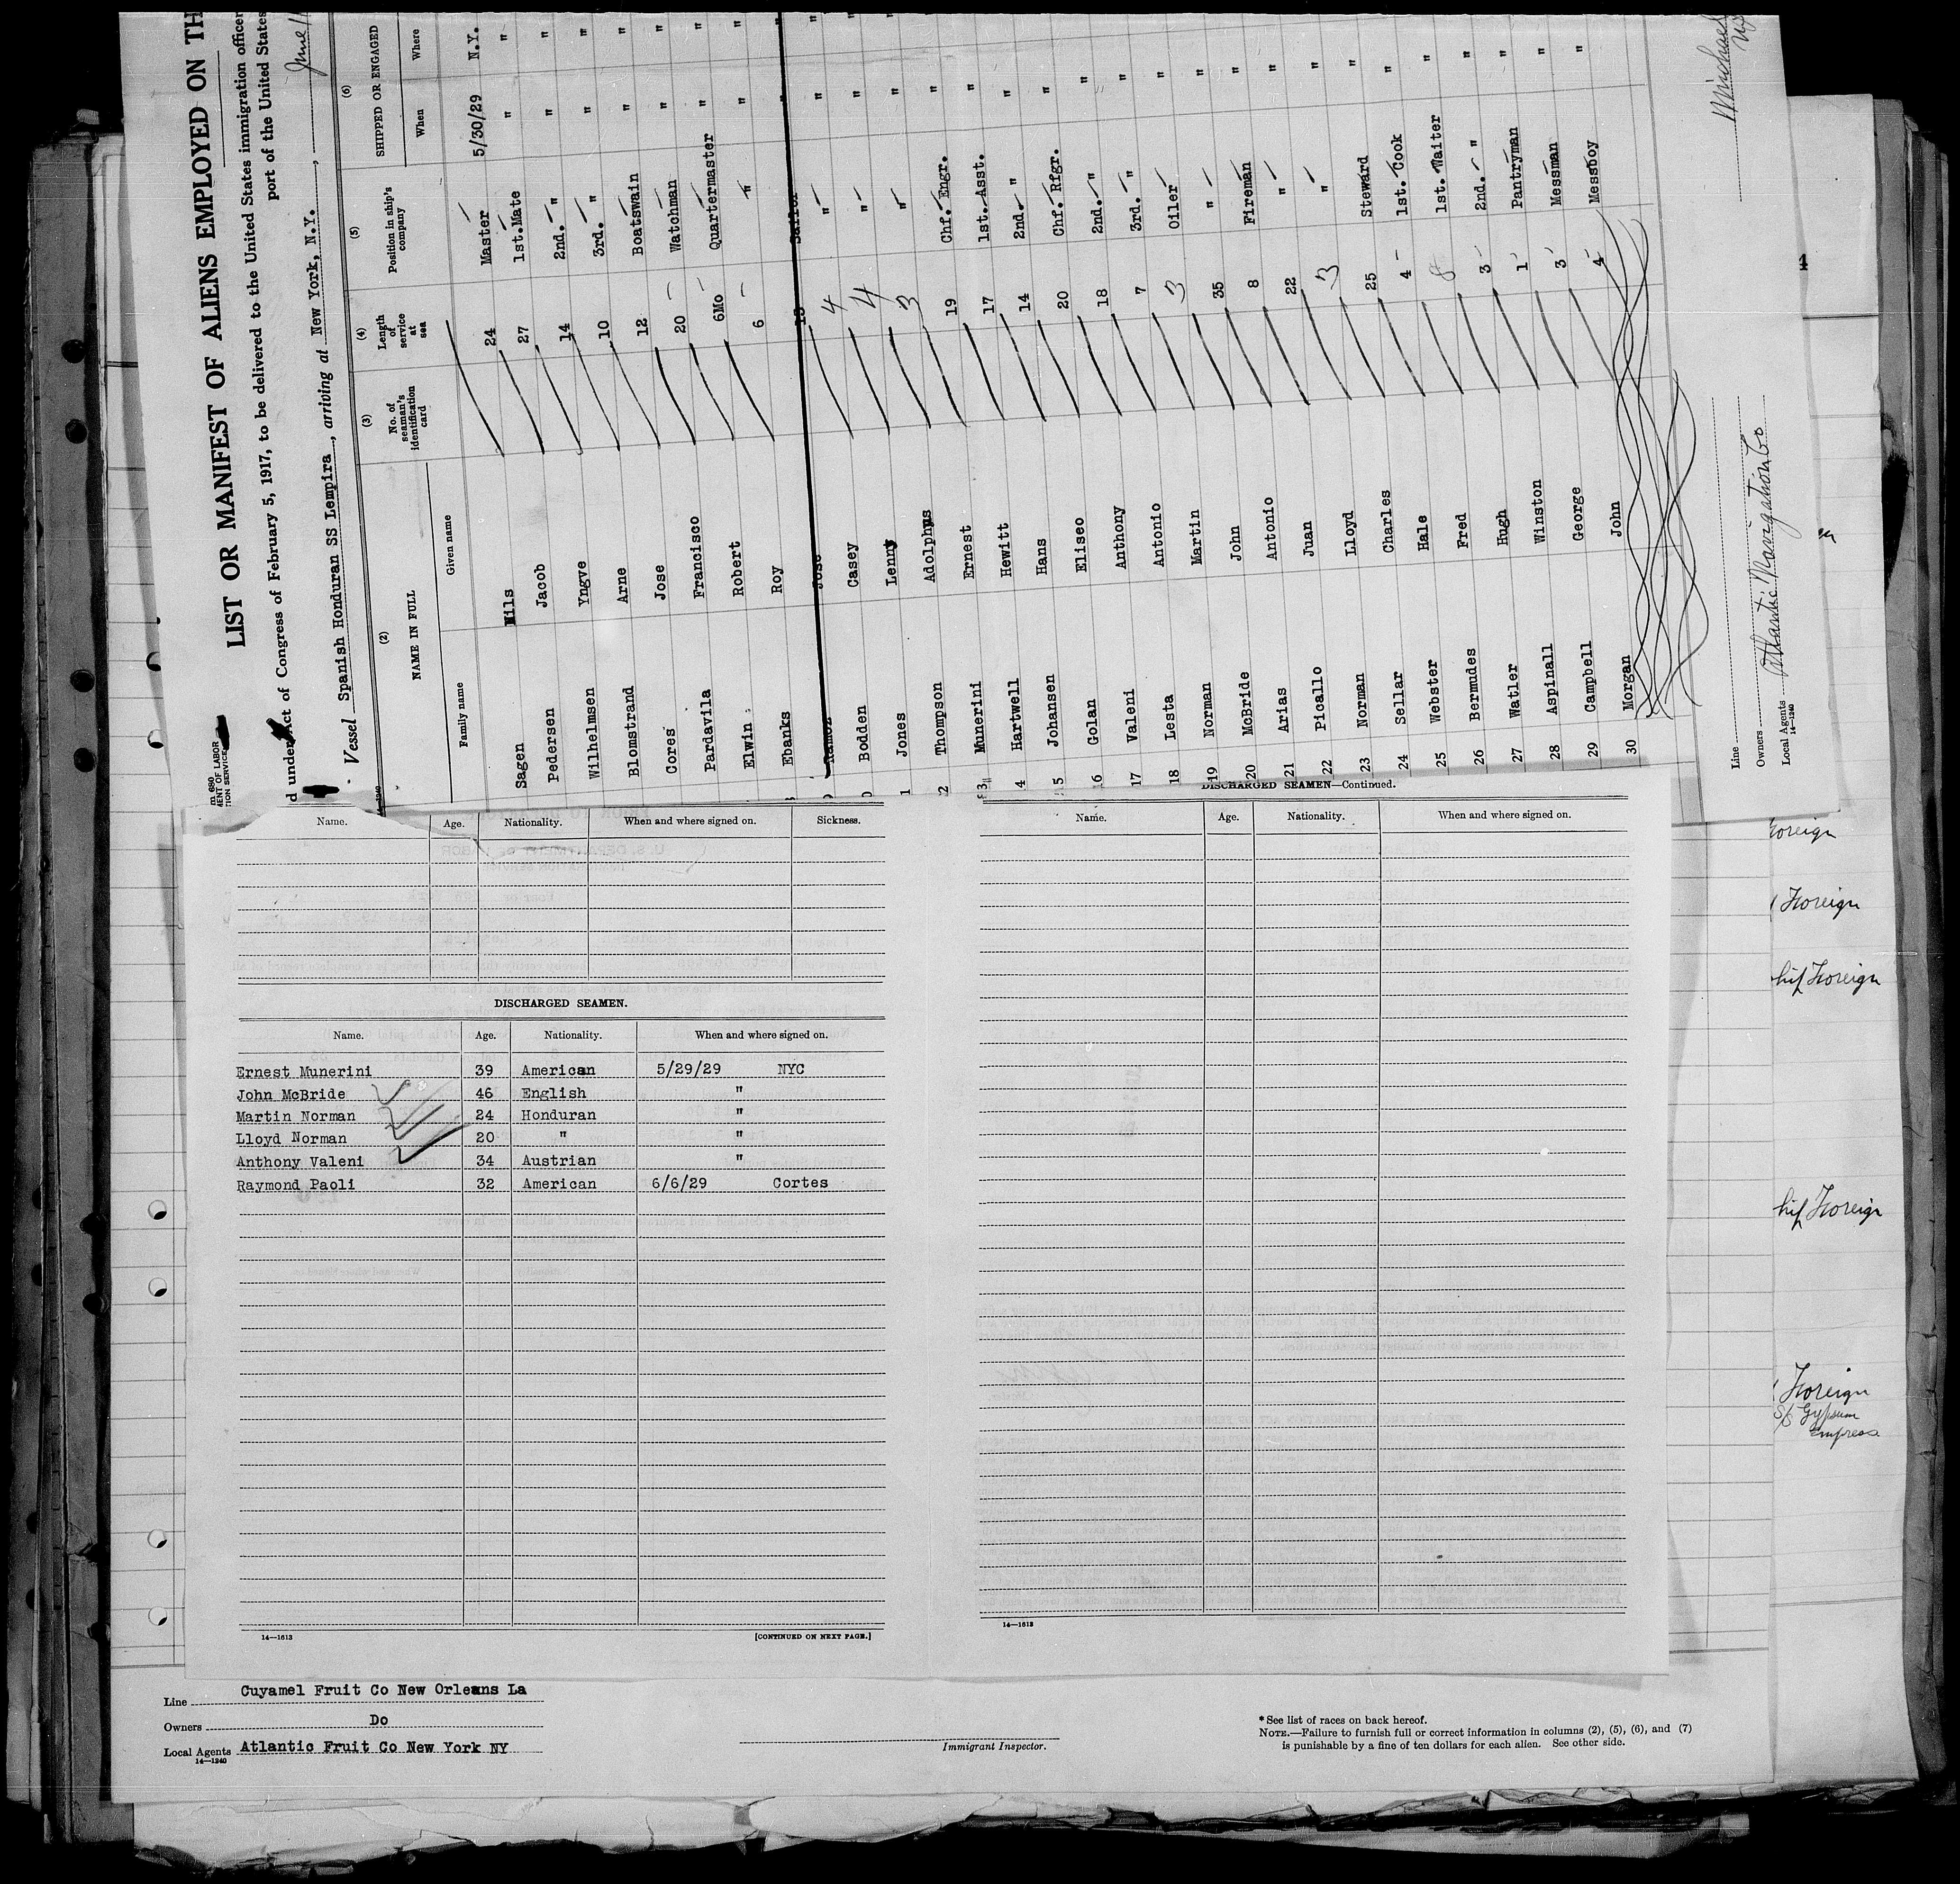 LIST OR MANIFEST OF ALIENS EMPLOYED ON TH
Act of Congress of February 5, 1917, to be delivered to the United States immigration officer
port of the United States
Vessel Spanish Honduran SS Lempira, arriving at New York, N.Y.,
(2) (3) (4) (5) (6)
NAME IN FULL No. of seaman's identification card Length of service at sea Position in ship's company SHIPPED OR ENGAGED
Family name Given name When Where
Sagen Nils 24 Master 5/30/29 N.Y.
Pedersen Jacob 27 1st.Mate " "
Wilhelmsen Yngve 14 2nd. " " "
Blomstrand Arne 10 3rd. " " "
Cores Jose 12 Boatswain " "
Pardavila Francisco 20 Watchman " "
Elwin Robert 6Mo Quartermaster " "
Ebanks Roy 6 " " "
Ramoz Jose 18 Sailor " "
Bodden Casey 4 " " "
1 Jones Lenny 4 " " "
2 Thompson Adolphus 3 " " "
3 Munerini Ernest 19 Chf. Engr. " "
4 Hartwell Hewitt 17 1st. Asst. " "
15 Johansen Hans 14 2nd. " " "
16 Golan Eliseo 20 Chf. Rfgr. " "
17 Valeni Anthony 18 2nd. " " "
18 Lesta Antonio 7 3rd. " " "
19 Norman Martin 3 Oiler " "
20 McBride John 35 " " "
21 Arias Antonio 8 Fireman " "
22 Picallo Juan 22 " " "
23 Norman Lloyd 3 " " "
24 Sellar Charles 25 Steward " "
25 Webster Hale 4 1st. Cook " "
26 Bermudes Fred 8 1st. Waiter " "
27 Watler Hugh 3 2nd. " " "
28 Aspinall Winston 1 Pantryman " "
29 Campbell George 3 Messman " "
30 Morgan John 4 Messboy " "
Line
Owners Atlantic Navigation Co
Local Agents
14-1240
Name. Age. Nationality. When and where signed on. Sickness.
DISCHARGED SEAMEN.
Name. Age. Nationality. When and where signed on.
Ernest Munerini 39 American 5/29/29 NYC
John McBride 46 English "
Martin Norman 24 Honduran "
Lloyd Norman 20 " "
Anthony Valeni 34 Austrian "
Raymond Paoli 32 American 6/6/29 Cortes
14—1613 [CONTINUED ON NEXT PAGE.]
DISCHARGED SEAMEN—Continued.
Name. Age. Nationality. When and where signed on.
14—1613
Foreign
Foreign
Foreign
Foreign
Foreign
S/S Gypsum
Empress
Line Cuyamel Fruit Co New Orleans La
Owners Do
Local Agents Atlantic Fruit Co New York NY
14—1240
Immigrant Inspector.
*See list of races on back hereof.
NOTE.—Failure to furnish full or correct information in columns (2), (5), (6), and (7)
is punishable by a fine of ten dollars for each alien. See other side.